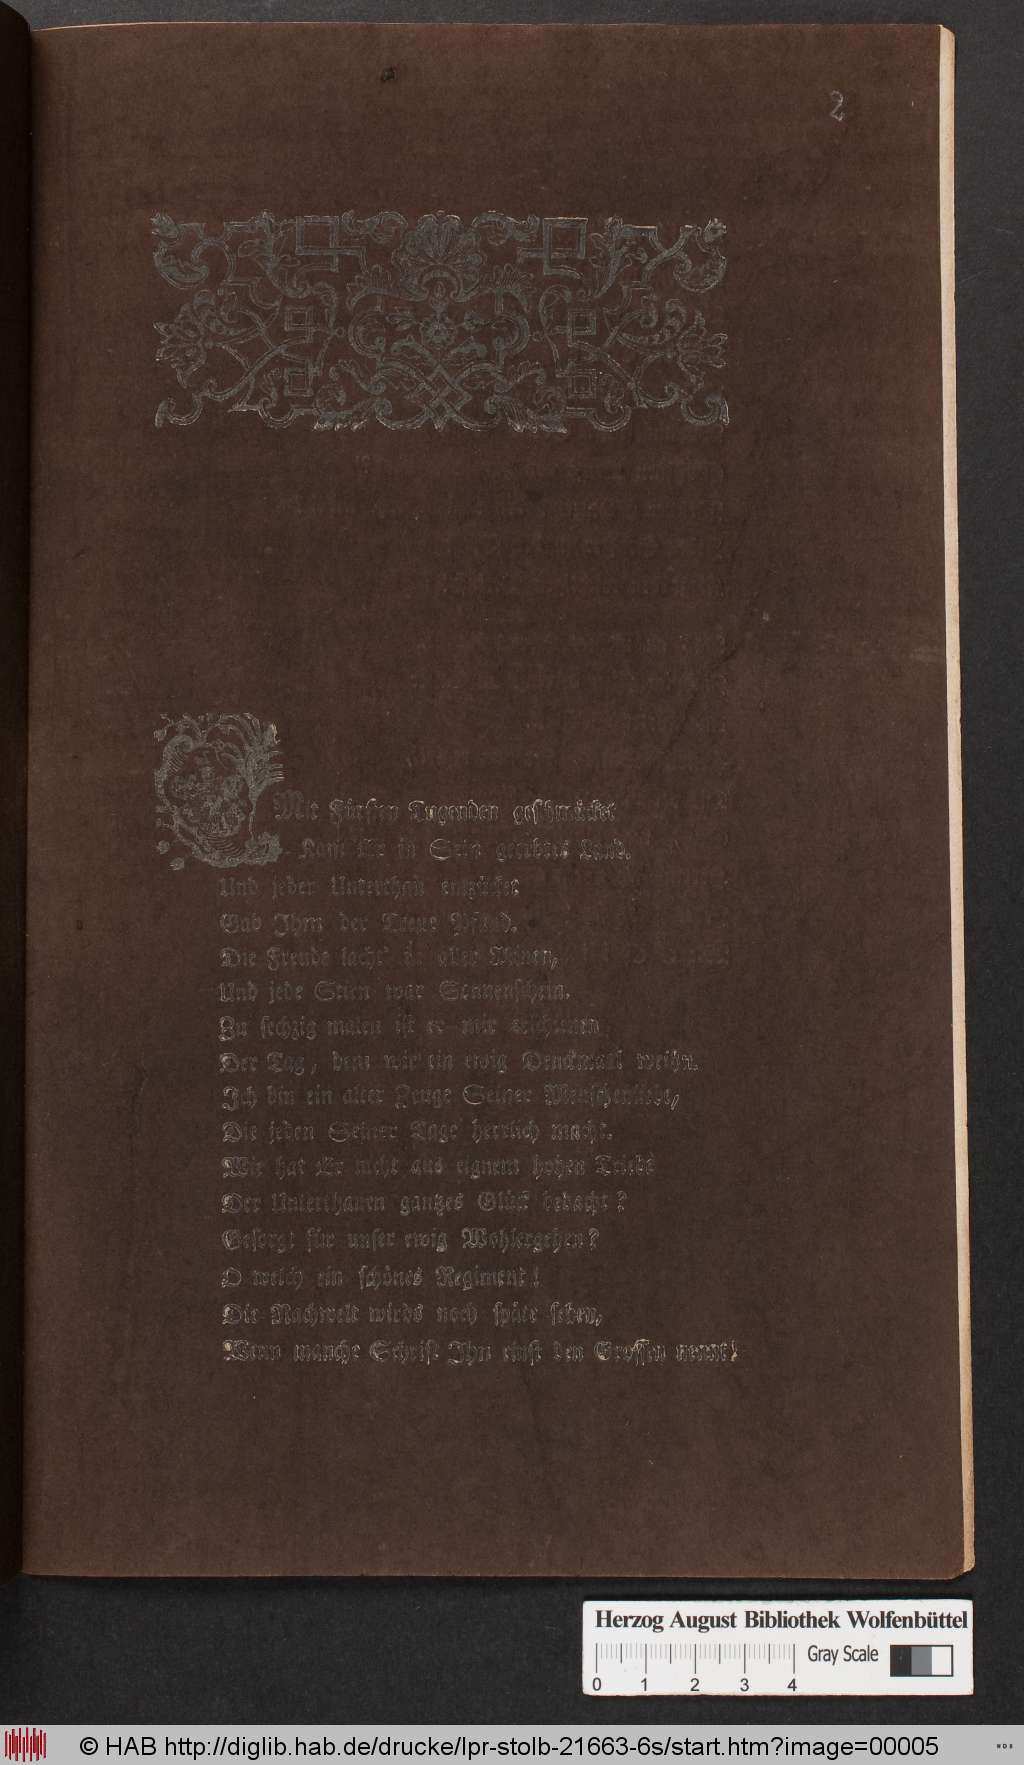 2
Mit Fürsten Tugenden geschmücket
Kam Er in Sein geerbtes Land.
Und jeder Unterthan entzücket
Gab Ihm der Treue Pfand.
Die Freude lacht' in aller Minen,
Und jede Stirn war Sonnenschein.
Zu sechzig malen ist er mir erschienen
Der Tag, dem wir ein ewig Denckmaal weihn.
Ich bin ein alter Zeuge Seiner Menschenliebe,
Die jeden Seiner Tage herrlich macht.
Wie hat Er nicht aus eignem hohen Triebe
Der Unterthanen gantzes Glück bedacht?
Gesorgt für unser ewig Wohlergehen?
O welch ein schönes Regiment!
Die Nachwelt wirds noch späte sehen,
Wenn manche Schrift Ihn einst den Grossen nennt!
Herzog August Bibliothek Wolfenbüttel
Gray Scale
0 1 2 3 4
© HAB http://diglib.hab.de/drucke/lpr-stolb-21663-6s/start.htm?image=00005